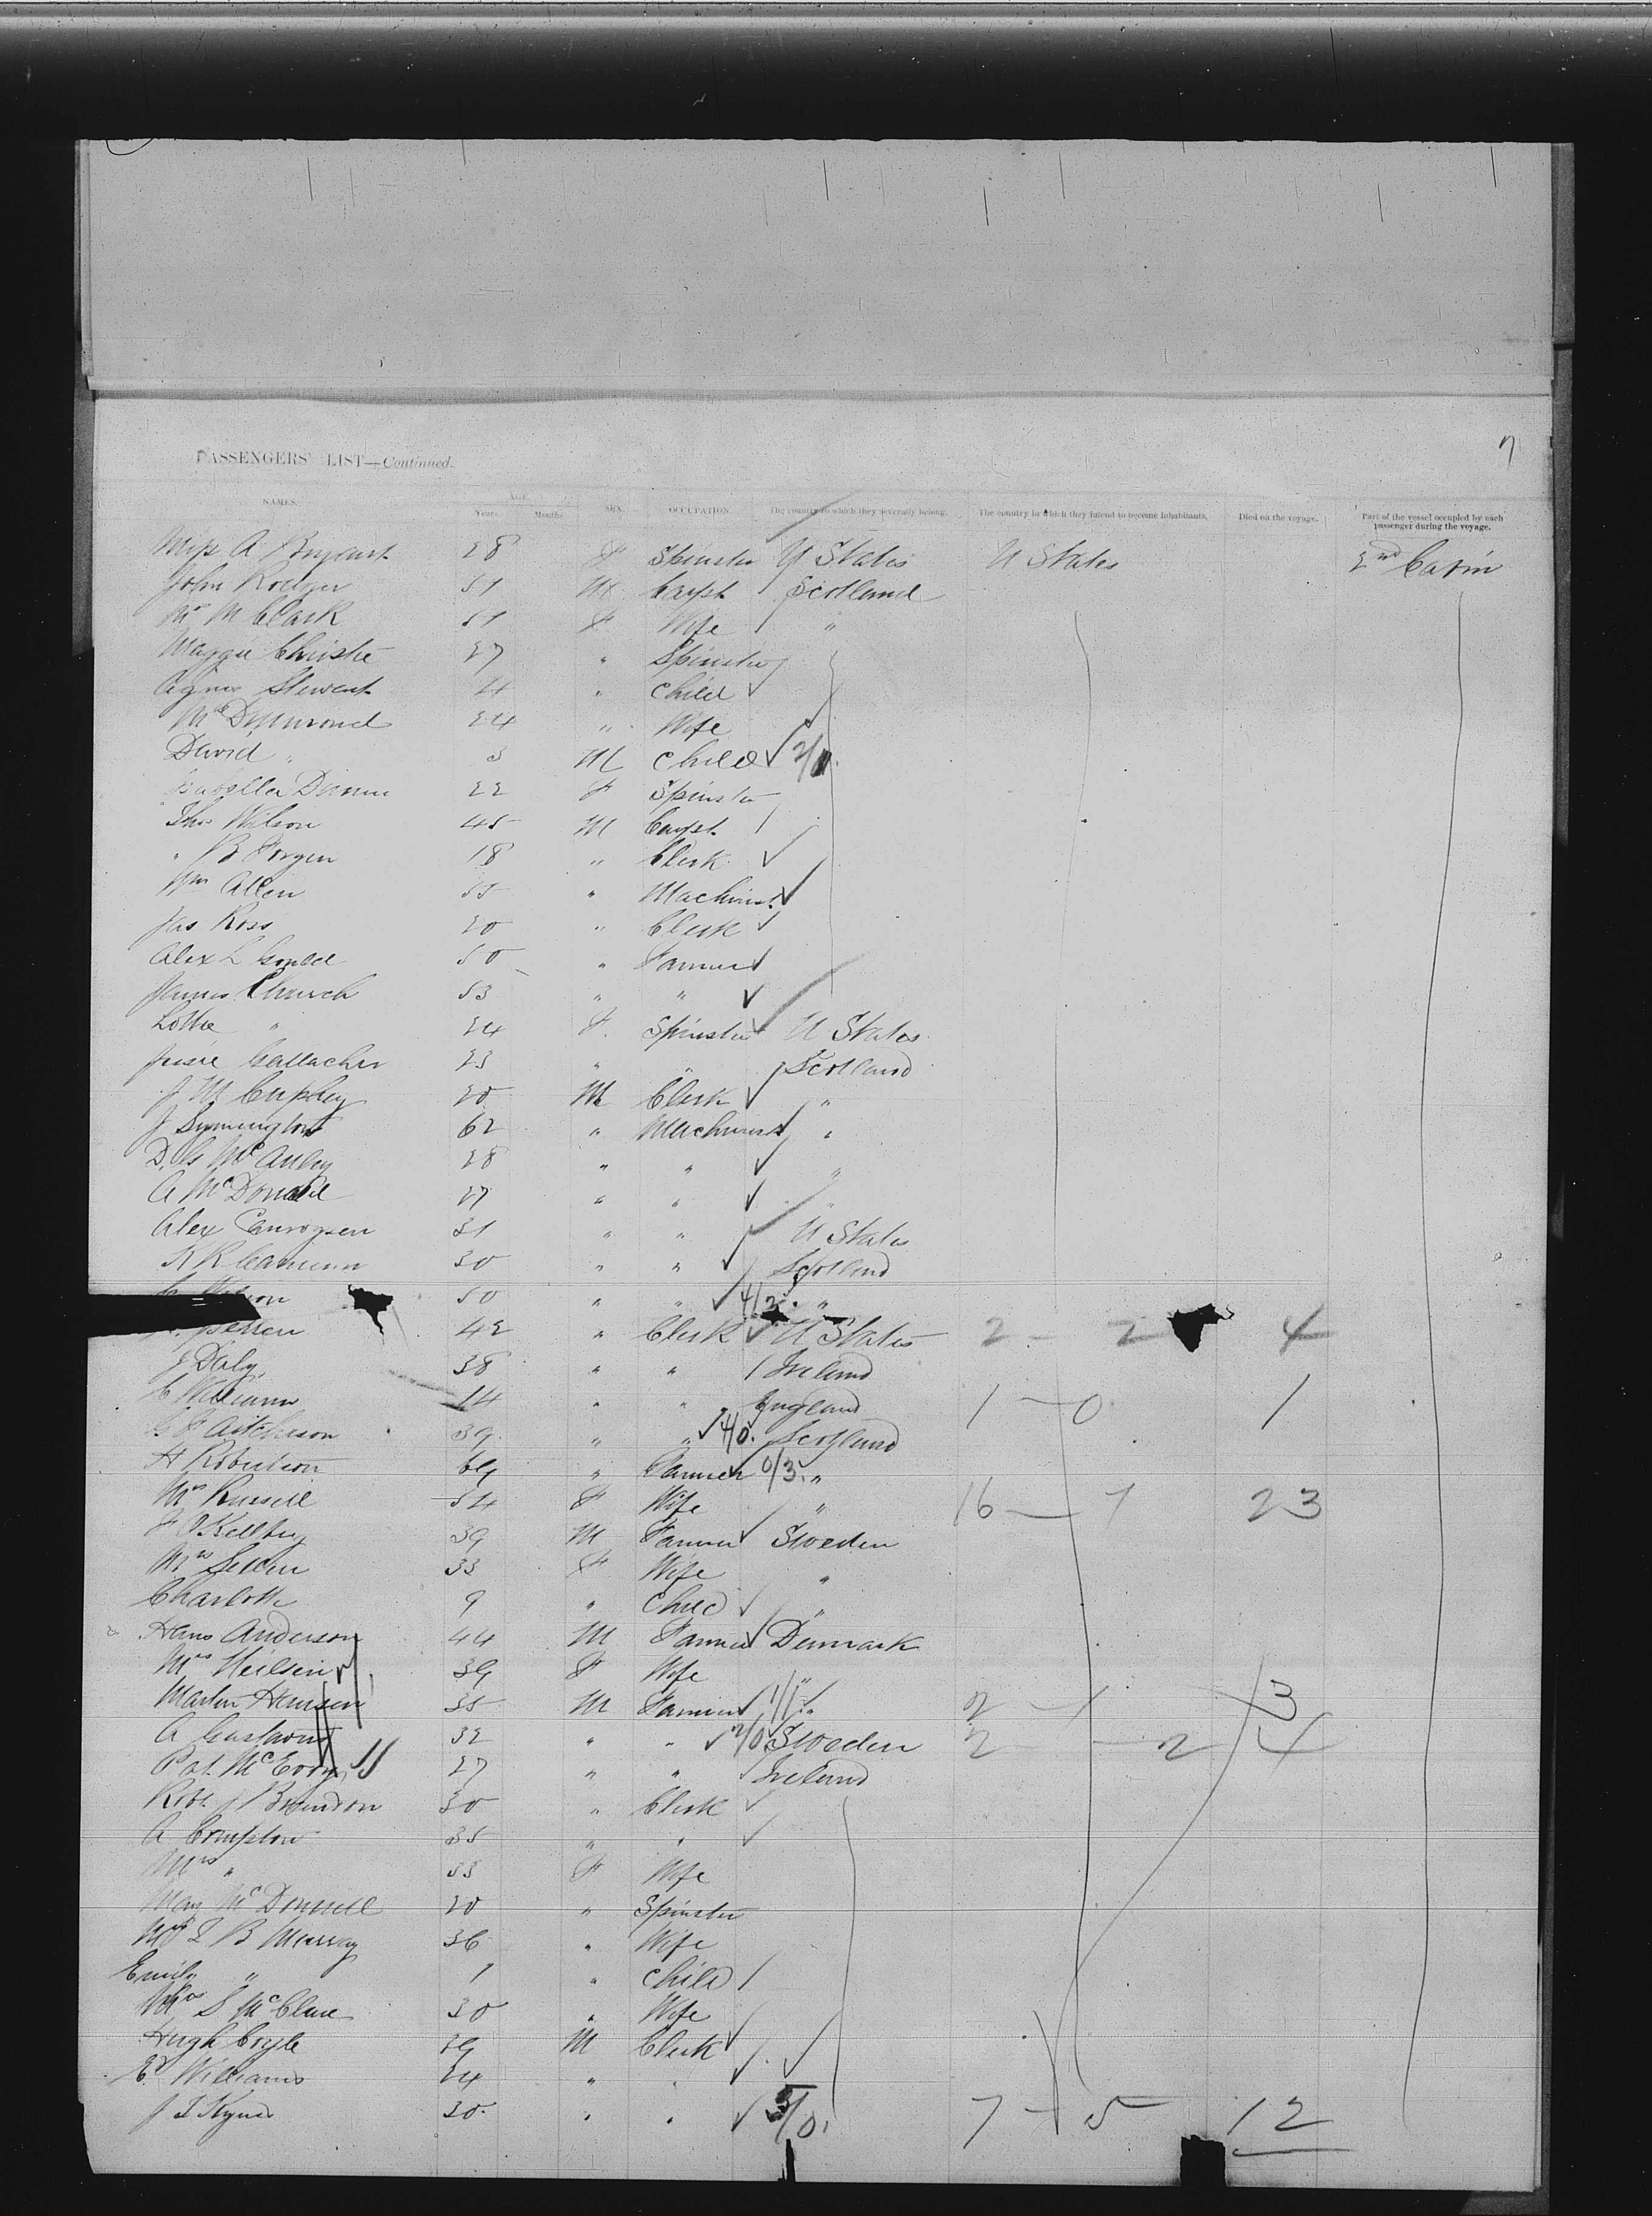 7
PASSENGERS' LIST—Continued.
NAMES. AGE. Years. Months. SEX. OCCUPATION The country to which they severally belong. The country in which they intend to become inhabitants. Died on the voyage. Part of the vessel occupied by each passenger during the voyage.
Miss A 28 F Spinster U States U States 2nd Cabin
John Rodger 51 M Carpt Scotland
Mrs M Clark 51 F Wife "
Maggie Christie 27 " Spinster
Agnes Stewart 4 " Child
Mrs 24 " Wife
David " 3 M Child 2/1
22 F Spinster
Thos Wilson 45 M Carpt
" 18 " Clerk
Wm Allen 55 " Machinist
Jas Ross 20 " Clerk
Alex L Gould 50 " Farmer
James Church 53 " "
Lottie " 24 F Spinster U States
Jessie Gallacher 23 " " Scotland
J M 20 M Clerk "
J Symington 62 " Machinist "
D. G McAuley 28 " " "
A McDonald 27 " " "
Alex 31 " " U States
30 " " Scotland
50 " " 4/3 "
42 " Clerk U States 2 - 2 4
J Daly 38 " " Ireland
C Williams 14 " " England 1 - 0 1
Aitchison 39 " " 4/0. Scotland
H Robertson 69 " Farmer 0/3. "
Mrs Russell 54 F Wife " 16 - 7 23
39 M Farmer Sweden
Mrs 33 F Wife "
Charlotte 9 " Child "
Hans Anderson 44 M Farmer Denmark
Mrs Neilsen 39 F Wife "
Martin Hansen 35 M Farmer 1/1 " 2 - 1 3
A 32 " " 2/0 Sweden 2 - 2 4
Pat McEvoy 27 " " Ireland
Robt J 30 " Clerk
A Compton 35 " "
Mrs " 33 F Wife
Mary McDonnell 20 " Spinster
Mrs L B Murray 36 " Wife
Emily " 1 " Child
Mrs S McClure 30 " Wife
Hugh Coyle 29 M Clerk
Ed Williams 24 " "
J 30 " " 5/0. 7 - 5 12